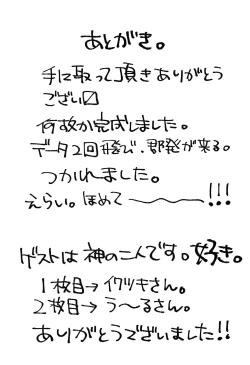 あとがき。
手に取って頂きありがとう
ござい〼
何故か完成しました。
データ2回飛び、郡発が来る。
つかれました。
えらい。ほめて〜〜!!!
ゲストは神の二人です。好き。
1枚目→イワツキさん。
2枚目→う〜るさん。
ありがとうございました!!